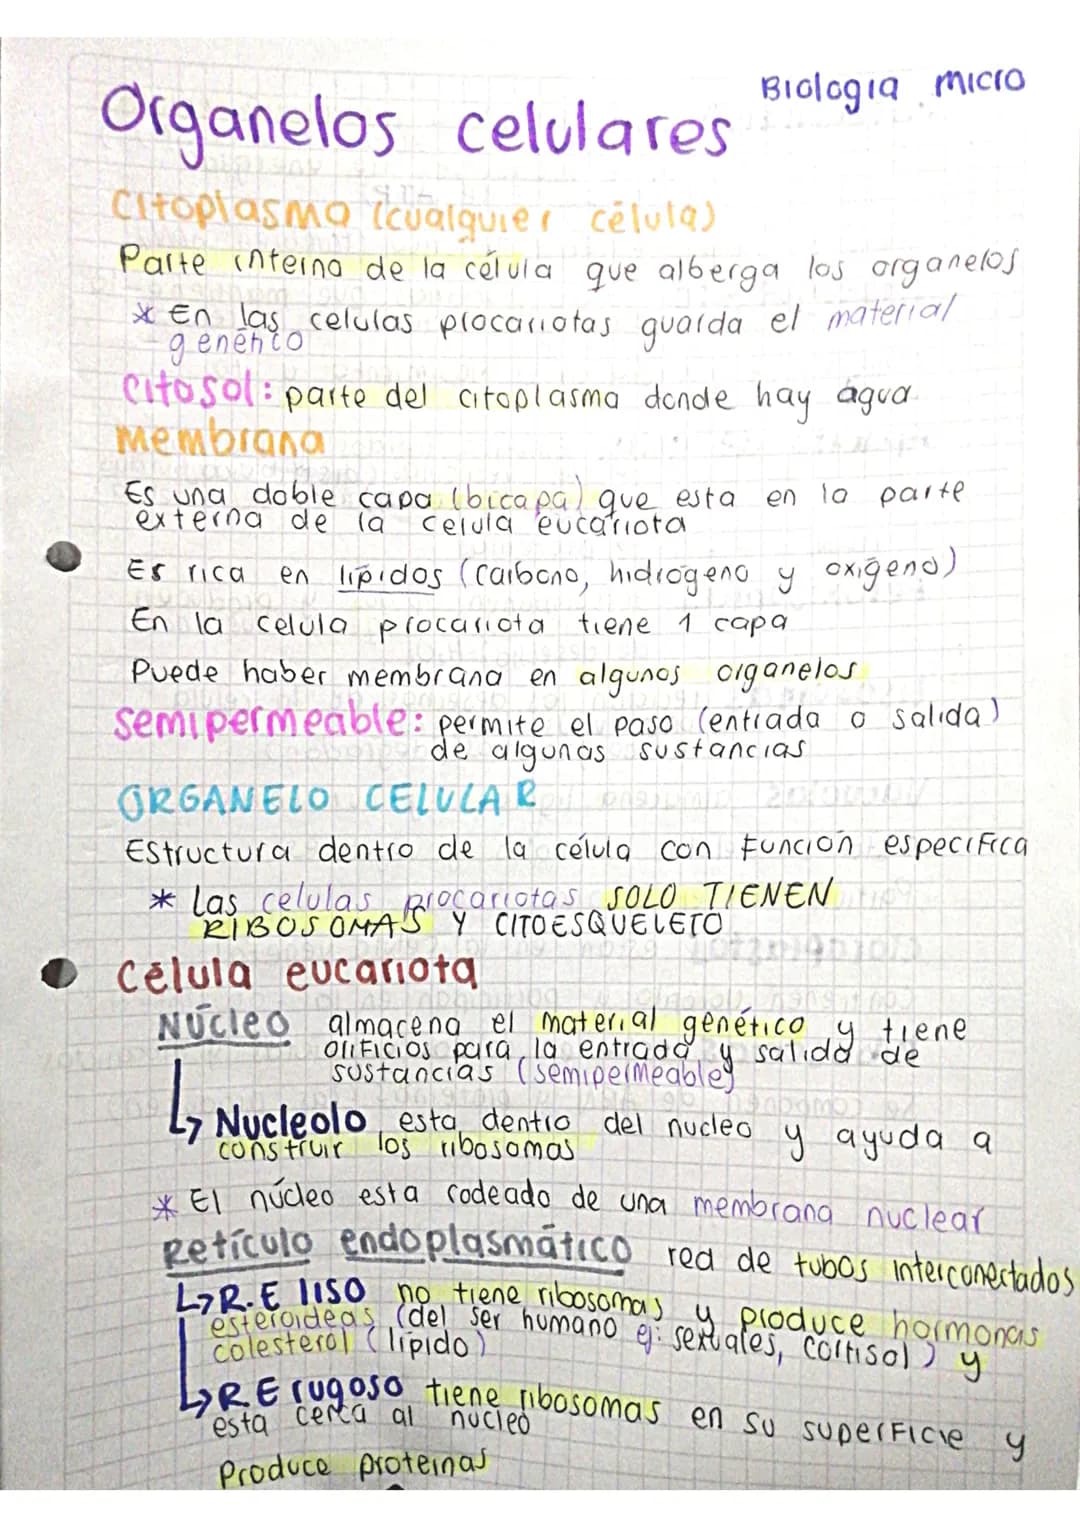 Biologia micro
Organelos celulares
Citoplasma (cualquier célula)
Parte interna de la célula que alberga los organelos
* En las celulas procariotas guarda el material
genético
Citosol: parte del citoplasma donde hay agua
Membrana
Es una doble capa (bicapa) que esta en la parte
externa de la celula eucariota
Es rica en lípidos (carbono, hidrógeno y oxígeno)
En la celula procariota tiene 1 capa
Puede haber membrana en algunos organelos
Semipermeable: permite el paso (entrada o salida)
de algunas sustancias
ORGANELO CELULAR
Estructura dentro de la célula con Función especifica
* Las celulas procariotas SOLO TIENEN
RIBOSOMAS Y CITOESQUELETO
Célula eucariota
Núcleo almacena el material genético y tiene
orificios para la entrada y salida de
sustancias (semipermeable)
↳ Nucleolo esta dentro del nucleo y ayuda a
construir los ribosomas
* El núcleo esta rodeado de una membrana nuclear
Retículo endoplasmático red de tubos interconectados
↳ R.E liso no tiene ribosomas y produce hormonas
esteroideas (del ser humano ej: sexuales, cortisol) y
colesterol (lípido)
↳ R.E rugoso tiene ribosomas en su superficie y
esta cerca al nucleo
Produce proteinas